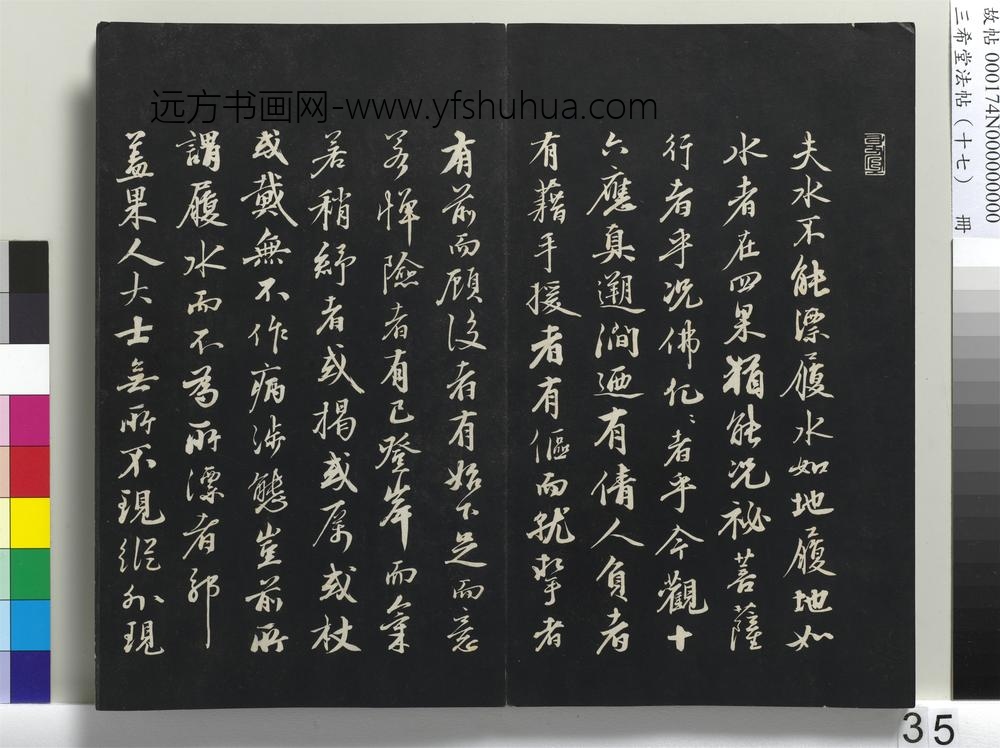 故帖 000174N000000000
三希堂法帖（十七） 冊
远方书画网-www.yfshuhua.com
夫水不能漂履水如地履地如
水者在四果猶能況秘菩薩
行者乎況佛化〻者乎今觀十
六應真遡澗迺有倩人負者
有藉手援者有傴而就掔者
有前而顧後者有始下足而意
若憚險者有已登岸而氣
若稍紓者或揭或厲或杖
或戴無不作病涉態豈前所
謂履水而不為所漂者耶
蓋果人大士無所不現縱外現
35